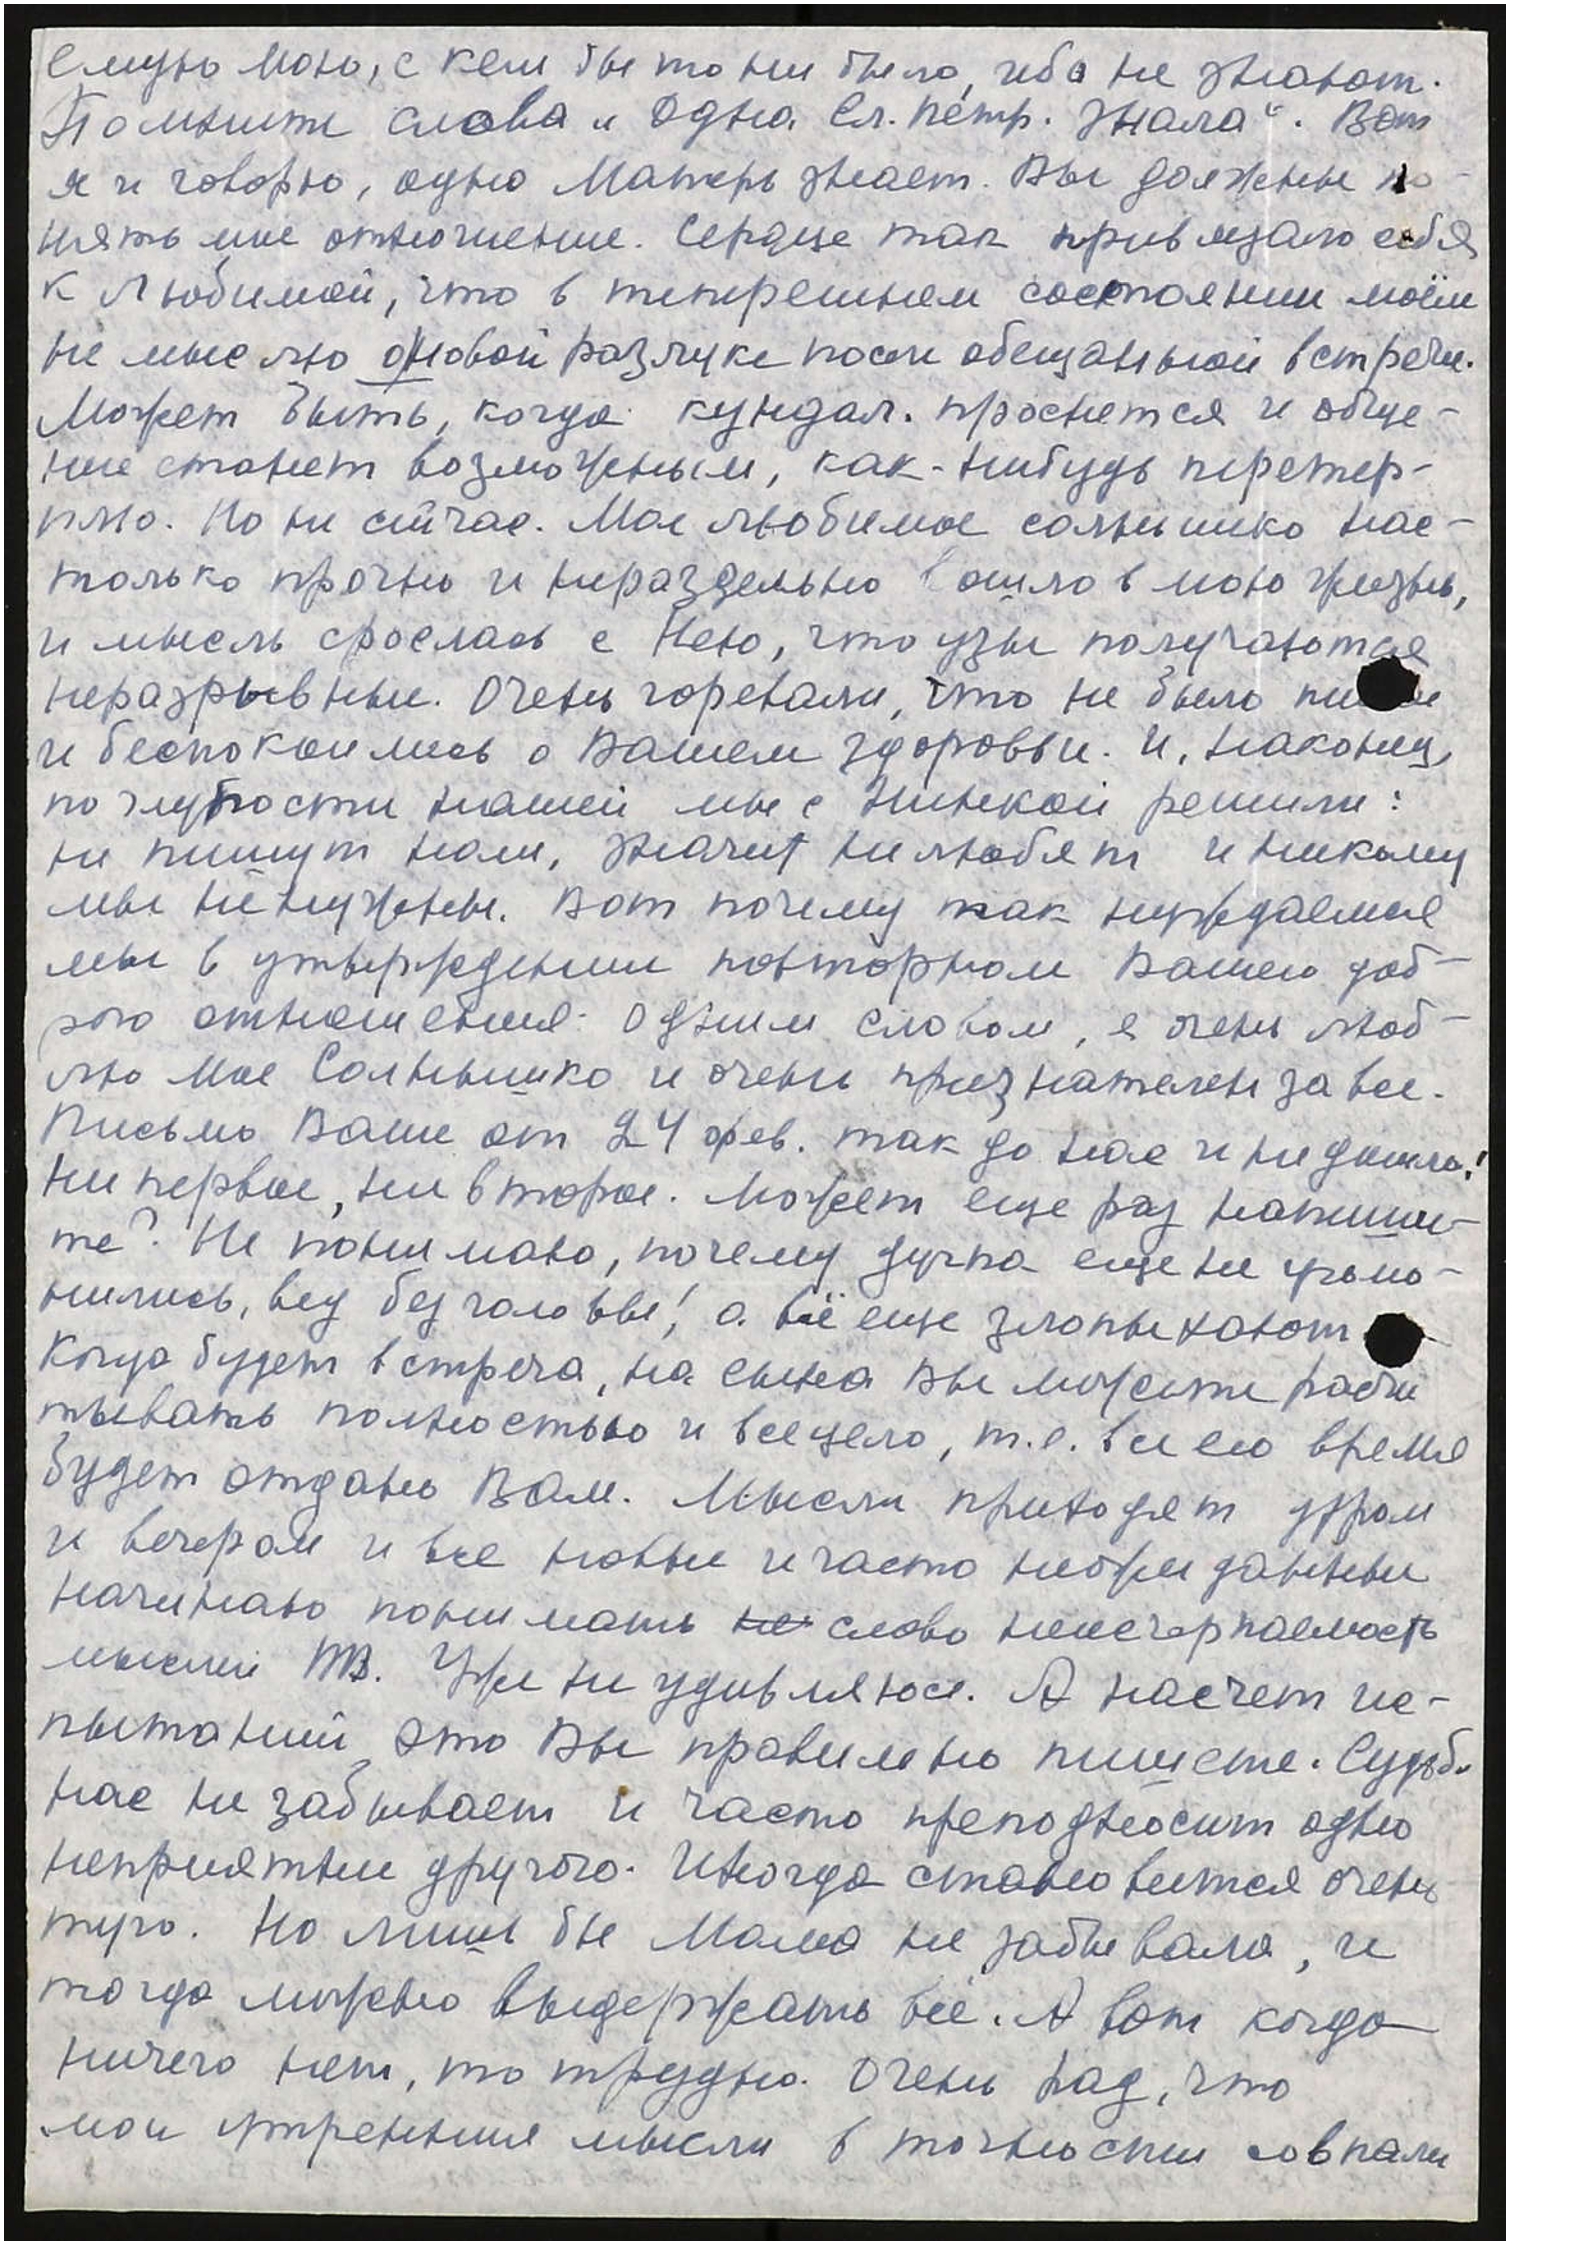 емую мою, с кем бы то ни было, ибо не знают.
Помните слова „Одна Ел. Петр. знала“. Вот
я и говорю, одна Матерь знает. Вы должны по-
нять мое отношение. Сердце так привязало себя
к Любимой, что в теперешнем состоянии моём
не мыслю о новой разлуке после обещанной встречи.
Может быть, когда кундал. проснется и обще-
ние станет возможным, как-нибудь перетер-
плю. Но не сейчас. Мое любимое солнышко нас-
только прочно и нераздельно вошло в мою жизнь,
и мысль срослась с Нею, что узы получаются
неразрывные. Очень горевали, что не было
и беспокоились о Вашем здоровьи. И, наконец,
по глупости нашей мы с Нинкой решили:
не пишут нам, значит не любят и никому
мы не нужны. Вот почему так нуждаемся
мы в утверждении повторном Вашего доб-
рого отношения. Одним словом, я очень люб-
лю мое Солнышко и очень признателен за все.
Письмо Ваше от 24 фев. так до нас и не дошло!
Ни первое, ни второе. Может еще раз напиши-
те? Не понимаю, почему дугпа еще не угомо-
нились, вед без головы! а всё еще злопыхают
Когда будет встреча, на сына Вы можете расчи
тывать полностью и всецело, т.е. все его время
будет отдано Вам. Мысли приходят утром
и вечером и все новые и часто неожиданные
начинаю понимать не слово неисчерпаемость
мыслей ТВ. Уже не удивляюсь. А насчет ис-
пытаний это Вы правильно пишете. Судьба
нас не забывает и часто преподносит одно
неприятнее другого. Иногда становится очень
туго. Но лишь бы Мама не забывала, и
тогда можно выдержать всё. А вот когда
ничего нет, то трудно. Очень рад, что
мои утренние мысли в точности совпали